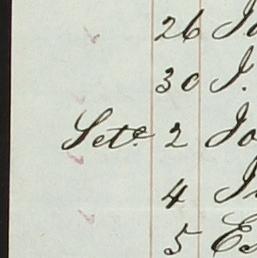 26 Jo
30 J.
Sete 2 Jo
4 J
5 Es